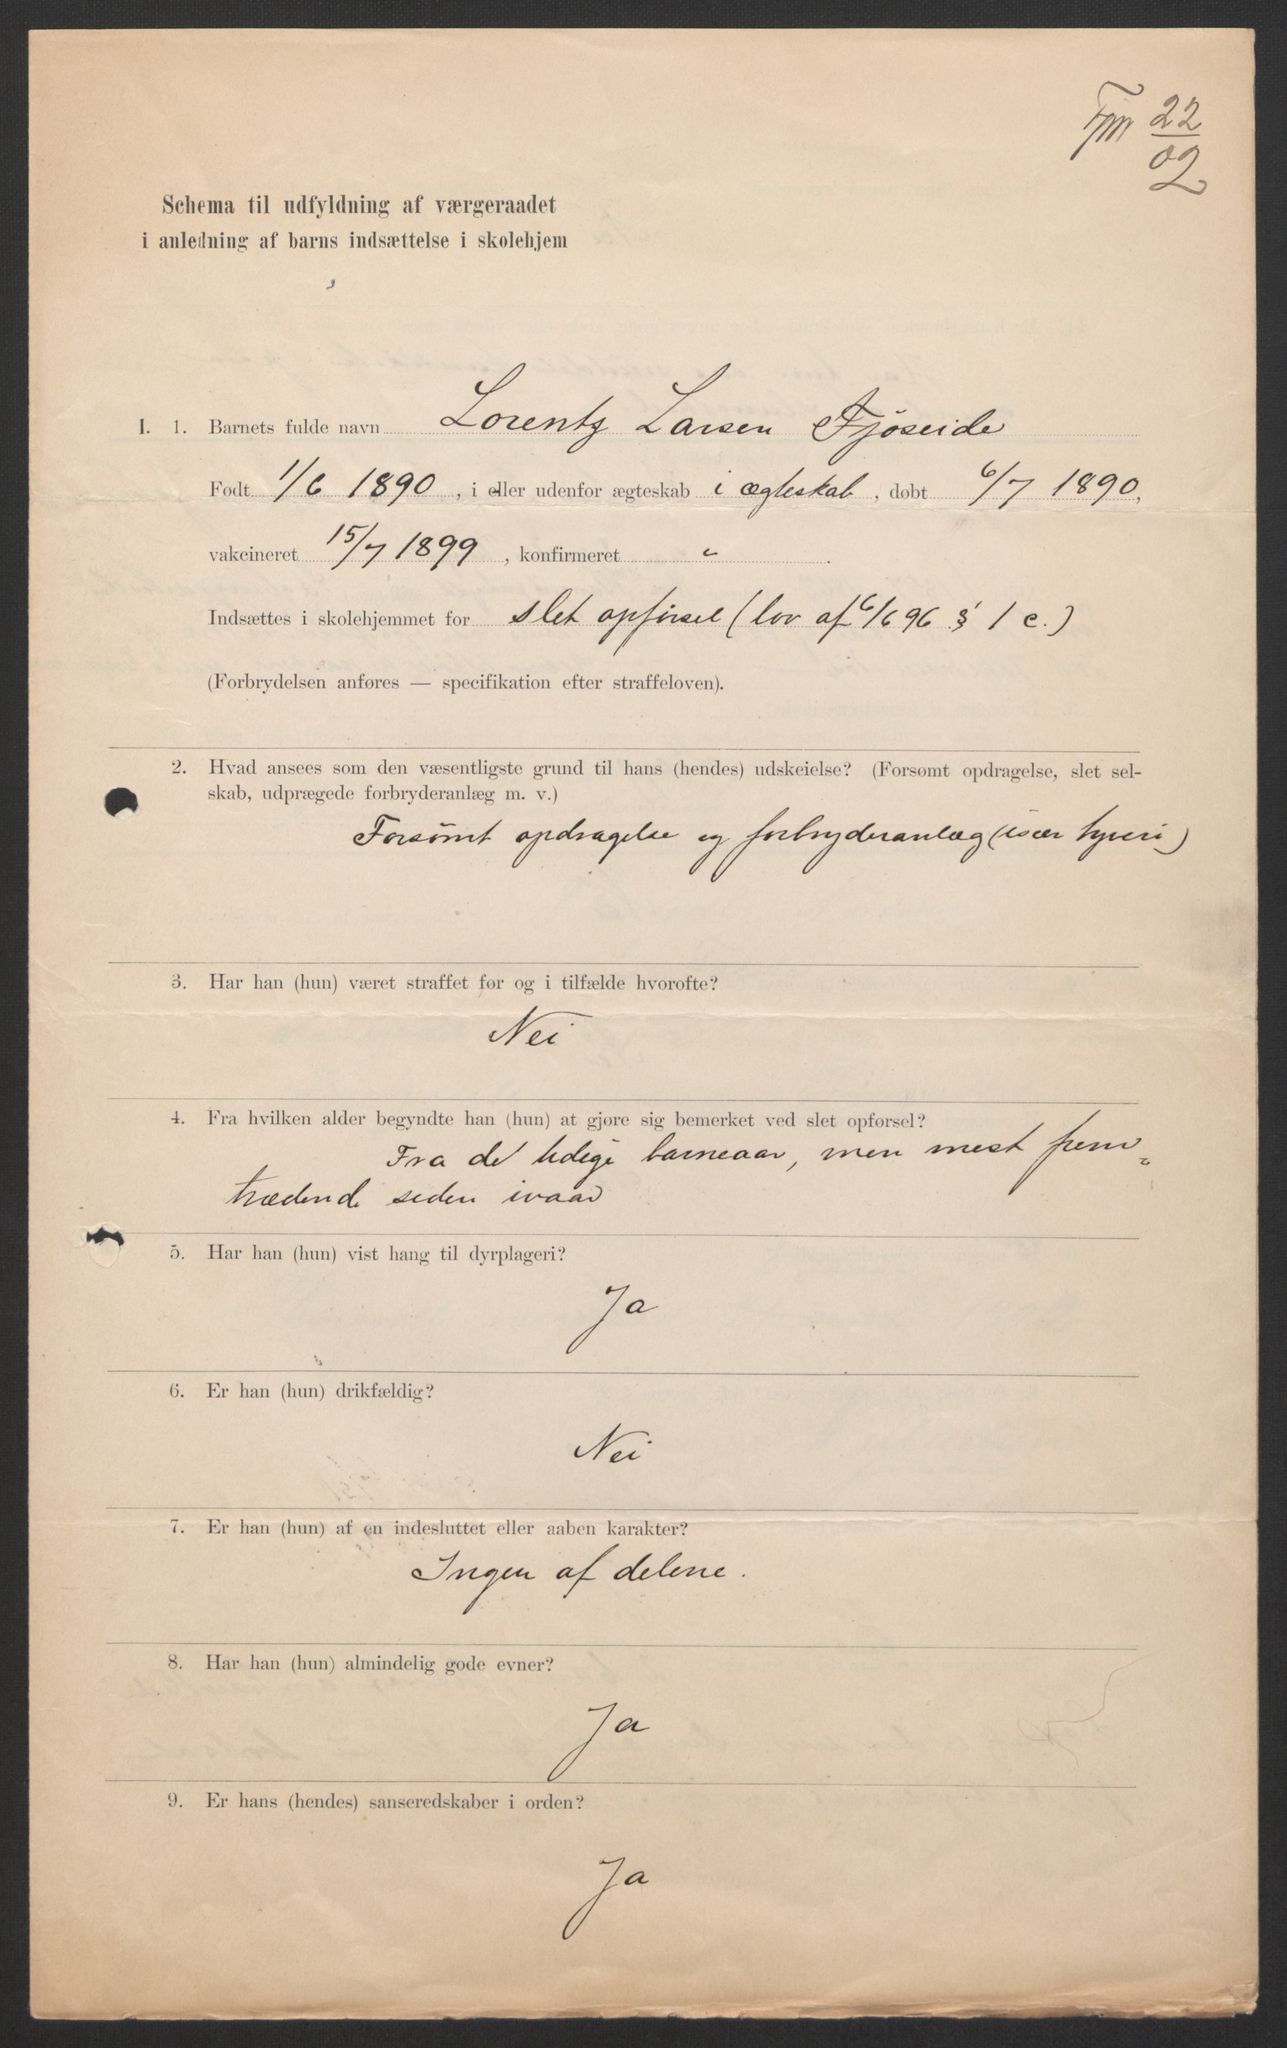 22
02
Schema til udfyldning af værgeraadet
i anledning af barns indsættelse i skolehjem
I. 1. Barnets fulde navn Lorentz Larsen Fjøseide
Født 1/6 1890, i eller udenfor ægteskab i ægteskab, døbt 6/7 1890,
vakcineret 15/7 1899, konfirmeret "
Indsættes i skolehjemmet for slet opførsel (lov af 6/6 96 § 1 c.)
(Forbrydelsen anføres — specifikation efter straffeloven).
2. Hvad ansees som den væsentligste grund til hans (hendes) udskeielse? (Forsømt opdragelse, slet sel-
skab, udprægede forbryderanlæg m. v.)
Forsømt opdragelse og forbryderanlæg (især tyveri)
3. Har han (hun) været straffet før og i tilfælde hvorofte?
Nei
4. Fra hvilken alder begyndte han (hun) at gjøre sig bemerket ved slet opførsel?
Fra de tidlige barneaar, men mest frem-
trædende siden ivaar
5. Har han (hun) vist hang til dyrplageri?
Ja
6. Er han (hun) drikfældig?
Nei
7. Er han (hun) af en indesluttet eller aaben karakter?
Ingen af delene.
8. Har han (hun) almindelig gode evner?
Ja
9. Er hans (hendes) sanseredskaber i orden?
Ja